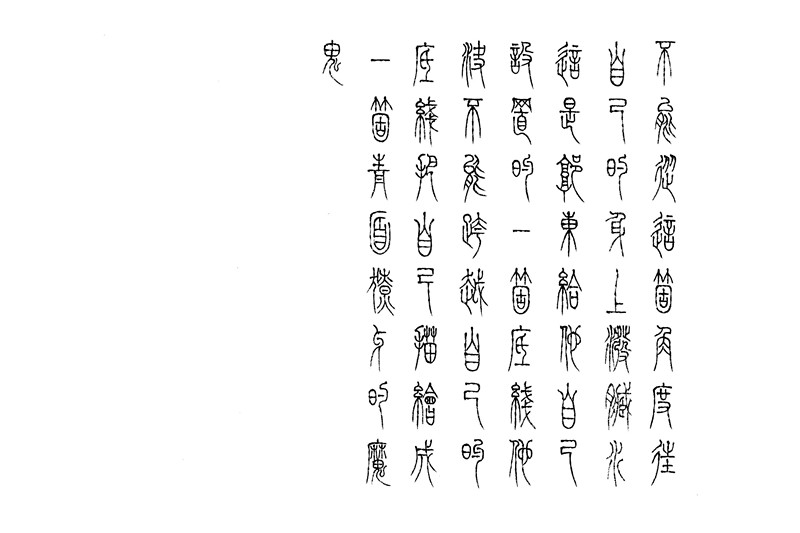 不能從這箇角度往
自己的身上潑臟水
這是郭東給他自己
設置的一箇底綫他
決不能跨越自己的
底綫把自己描繪成
一箇青面獠牙的魔
鬼